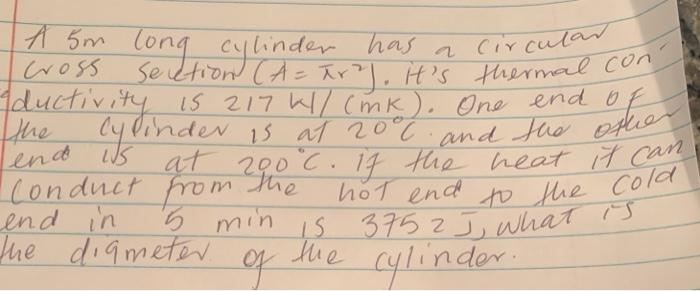 A 5m long cylinder has a circular
cross section (A = πr²). it's thermal con-
ductivity is 217 W/(mK). One end of
the cylinder is at 20°C and the other
end is at 200°C. if the heat it can
conduct from the hot end to the cold
end in 5 min is 3752 J, what is
the diameter of the cylinder.